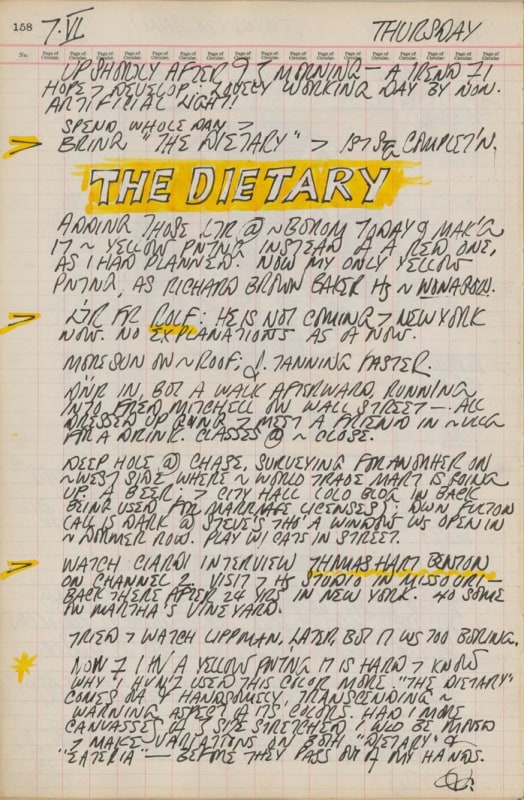 158 7·VI THURSDAY
No. Page of Circular. Page of Circular. Page of Circular. Page of Circular. Page of Circular. Page of Circular. Page of Circular. Page of Circular. Page of Circular. Page of Circular. Page of Circular. Page of Circular.
UP SHORTLY AFTER 9 MORNING — A TREND I I
HOPE > DEVELOP: LOVELY WORKING DAY BY NOW.
ARTIFICIAL LIGHT!
SPEND WHOLE DAY >
> BRING "THE DIETARY" > 1ST COMPLET'N.
THE DIETARY
ADDING THOSE LTR @ ~ BOTOM TODAY & MAK'G
IT ~ YELLOW PNTNG INSTEAD A RED ONE,
AS I HAD PLANNED. NOW MY ONLY YELLOW
PNTNG, AS RICHARD BROWN BAKER HS ~
> L'TR FR ROLF: HE IS NOT COMING > NEW YORK
NOW. NO EXPLANATIONS AS OF NOW.
MORE SUN ON ~ ROOF; J. TANNING FASTER.
DN'R IN BUT A WALK AFTERWARD, RUNNING
INTO FRED MITCHELL ON WALL STREET — ALL
DRESSED UP GOING > MEET A FRIEND IN ~ VLLG
FOR A DRINK. CLASSES @ ~ CLOSE.
DEEP HOLE @ CHASE, SURVEYING FOR ANOTHER ON
~ WEST SIDE WHERE ~ WORLD TRADE MART IS GOING
UP. A BEER; > CITY HALL (OLD BLDG IN BACK
BEING USED FOR MARRIAGE LICENSES); DOWN FULTON
CALL IS DARK @ STEVE'S THO A WINDOW WS OPEN IN
~ DORMER ROW. PLAY W/ CATS IN STREET.
> WATCH CIARDI INTERVIEW THOMAS HART BENTON
ON CHANNEL 2. VISIT > HS STUDIO IN MISSOURI —
BACK THERE AFTER 24 YRS IN NEW YORK. 40 SOME
ON MARTHA'S VINEYARD.
TRIED > WATCH LIPPMAN, LATER, BUT IT WS TOO BORING.
NOW I I'M A YELLOW PNTNG IT IS HARD > KNOW
WHY I HVN'T USED THIS COLOR MORE. "THE DIETARY"
COMES OF HANDSOMELY, TRANSCENDING ~
WARNING ASPECT A ITS COLORS. HAD I MORE
CANVASSES A SIZE STRETCHED I WD BE MOVED
> MAKE VARIATIONS ON BOTH "DIETARY" &
"EATERIA" — BEFORE THEY PASS OUT A MY HANDS.